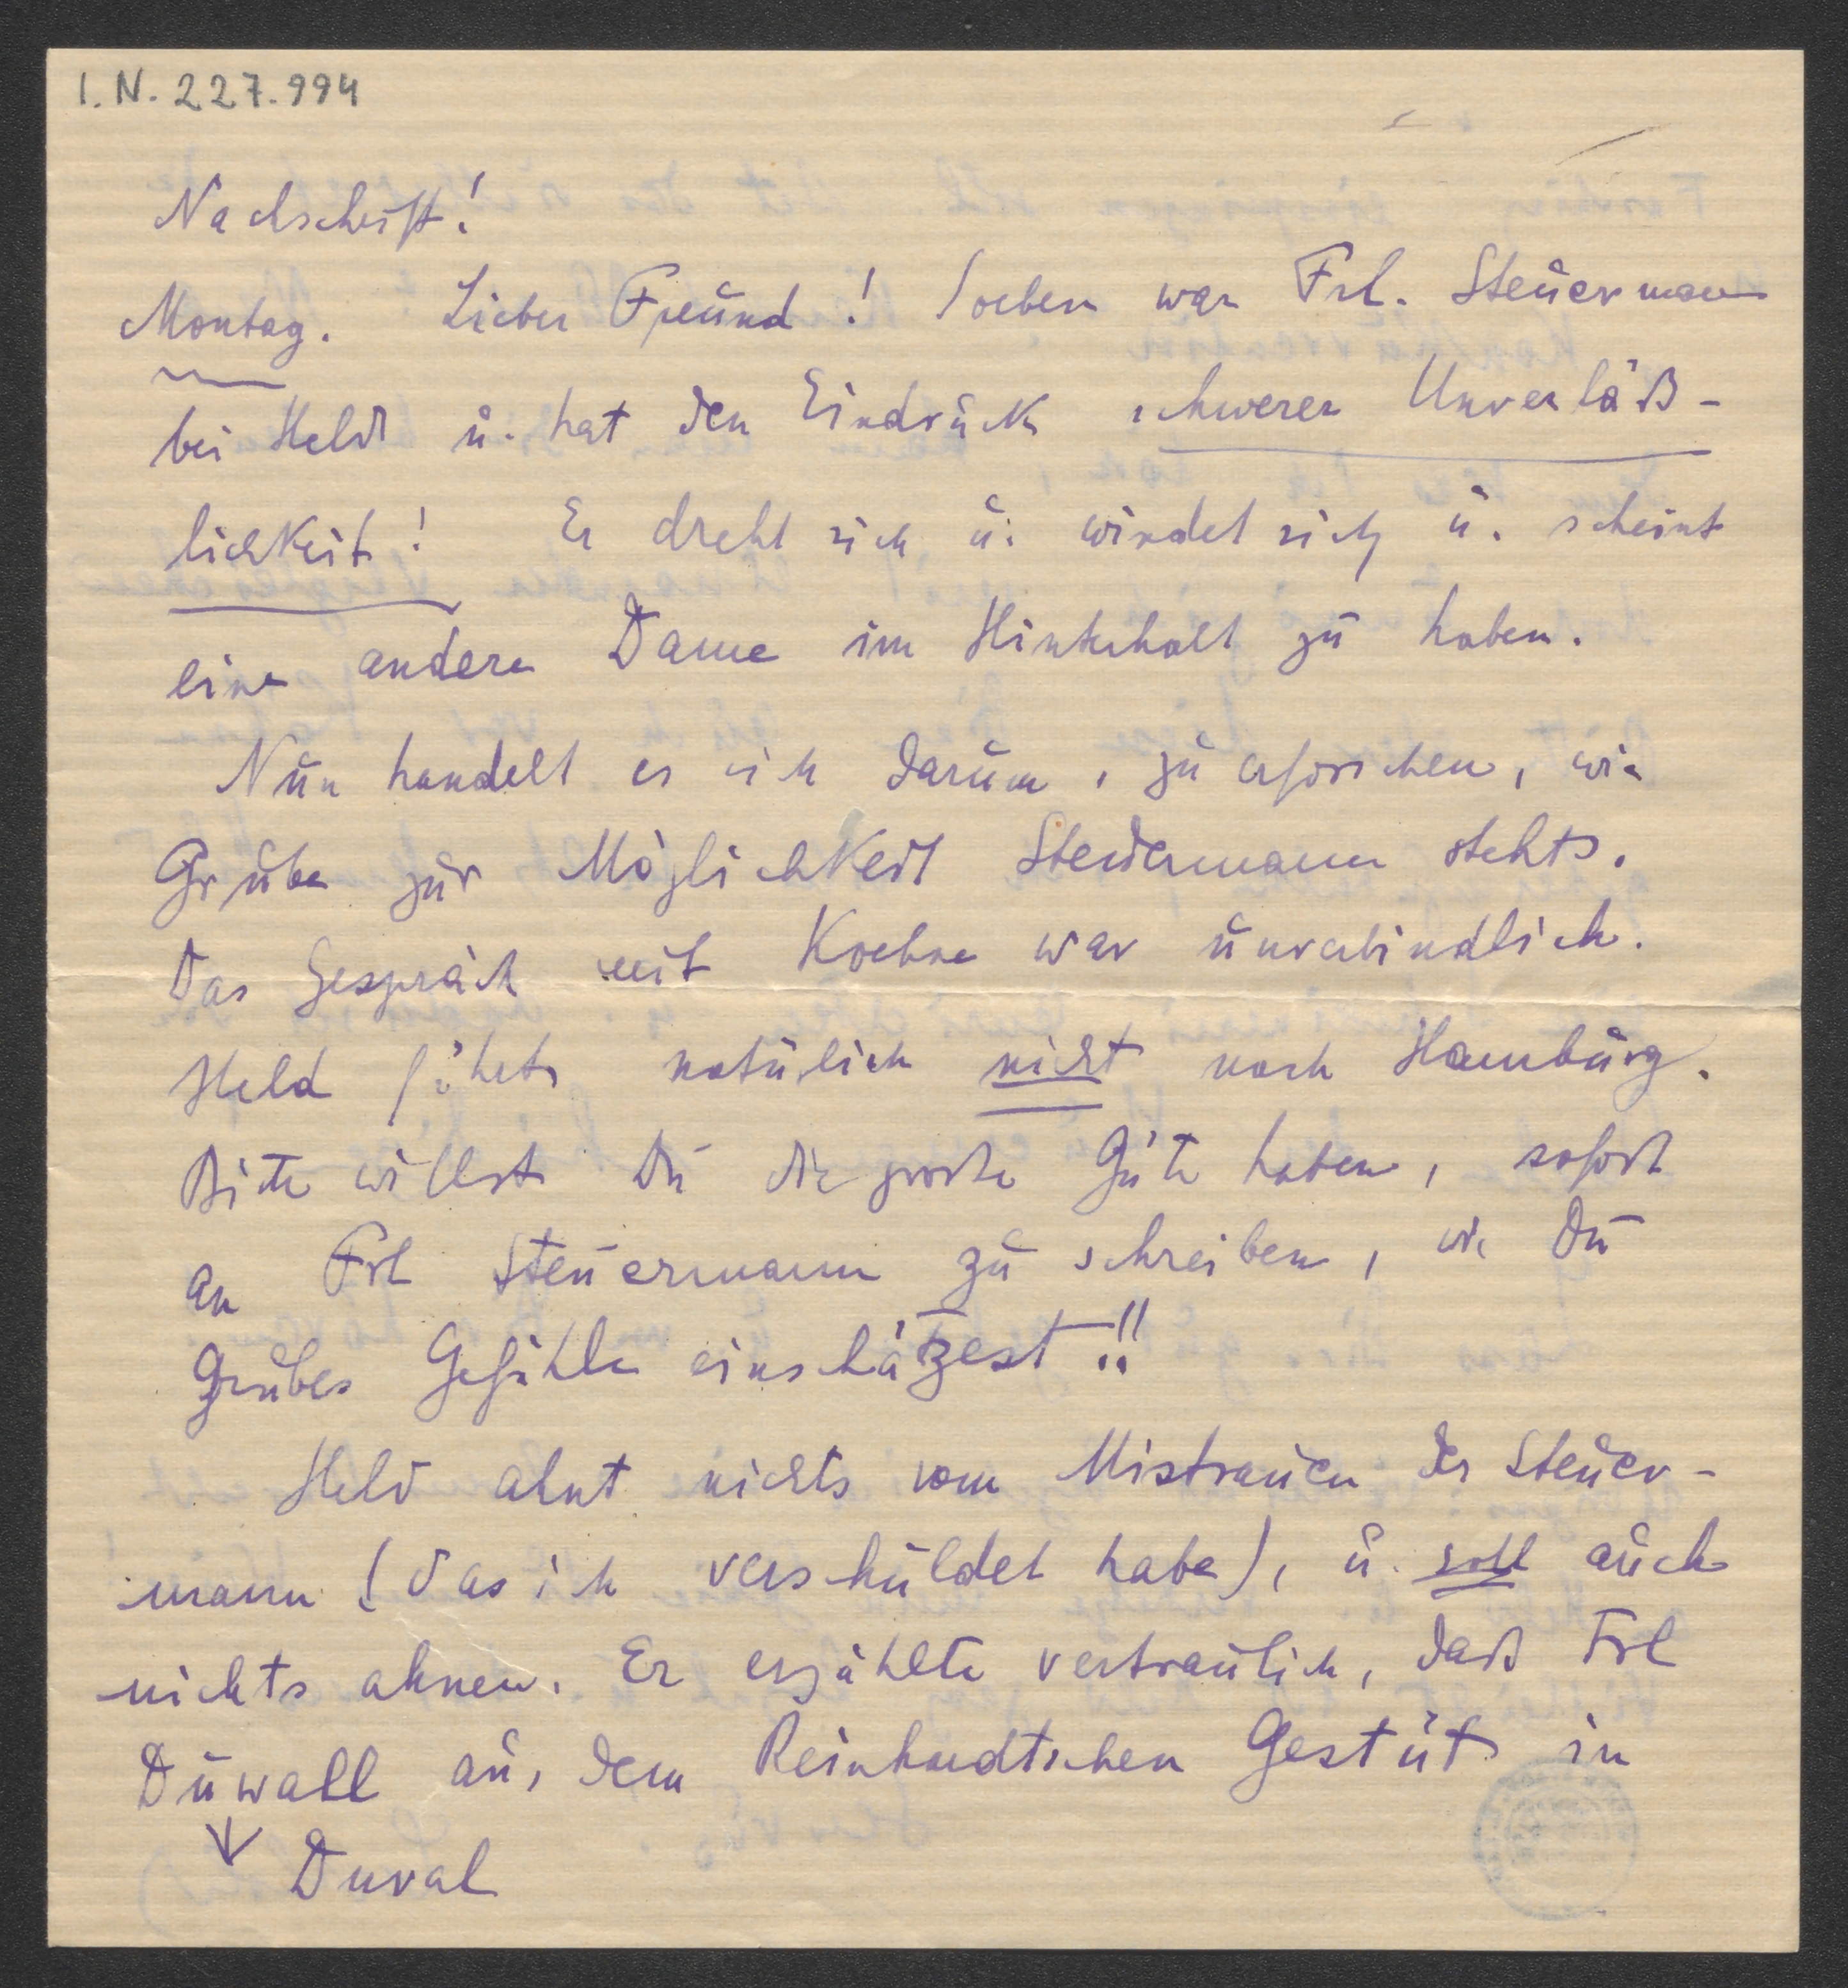 I.N. 227.994
Nachschrift!
Montag. Lieber Freund! Soeben war Frl. Steuermann
bei Held u. hat den Eindruck schwerer Unverläß-
lichkeit! Er dreht sich u. windet sich u. scheint
eine andere Dame im Hinterhalt zu haben.
Nun handelt es sich darum, zu erforschen, wie
Grube zur Möglichkeit Steuermann steht.
Das Gespräch mit Koehne war unverbindlich.
Held fährt natürlich nicht nach Hamburg.
Bitte willst Du die große Güte haben, sofort
an Frl Steuermann zu schreiben, wie Du
Grubes Gefühle einschätzest!!
Held ahnt nichts vom Mistrauen der Steuer-
mann (das ich verschuldet habe), u. soll auch
nichts ahnen. Er erzählte vertraulich, daß Frl
Duwall aus dem Reinhardtschen Gestüt in
Duval